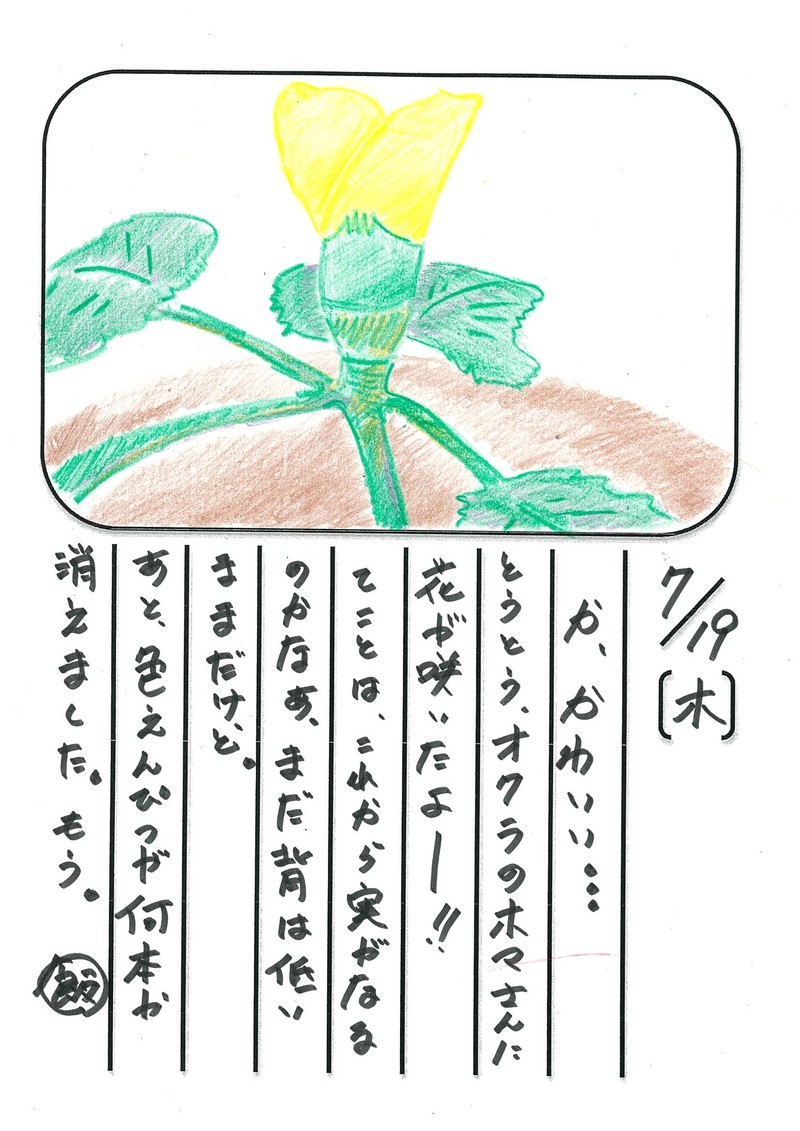 7/19〔木〕
か、かわいい…
とうとう、オクラのホマさんに
花が咲いたよー!!
てことは、これから実がなる
のかなぁ、まだ背は低い
ままだけど。
あと、色えんぴつが何本か
消えました。もう。
飯